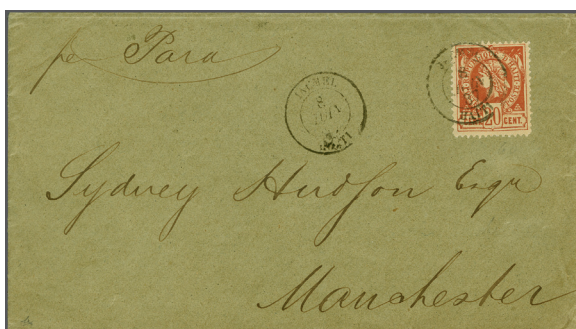 pr Para
JACMEL
8
HAITI
20 CENT.
Sydney Hudson Esqr
Manchester